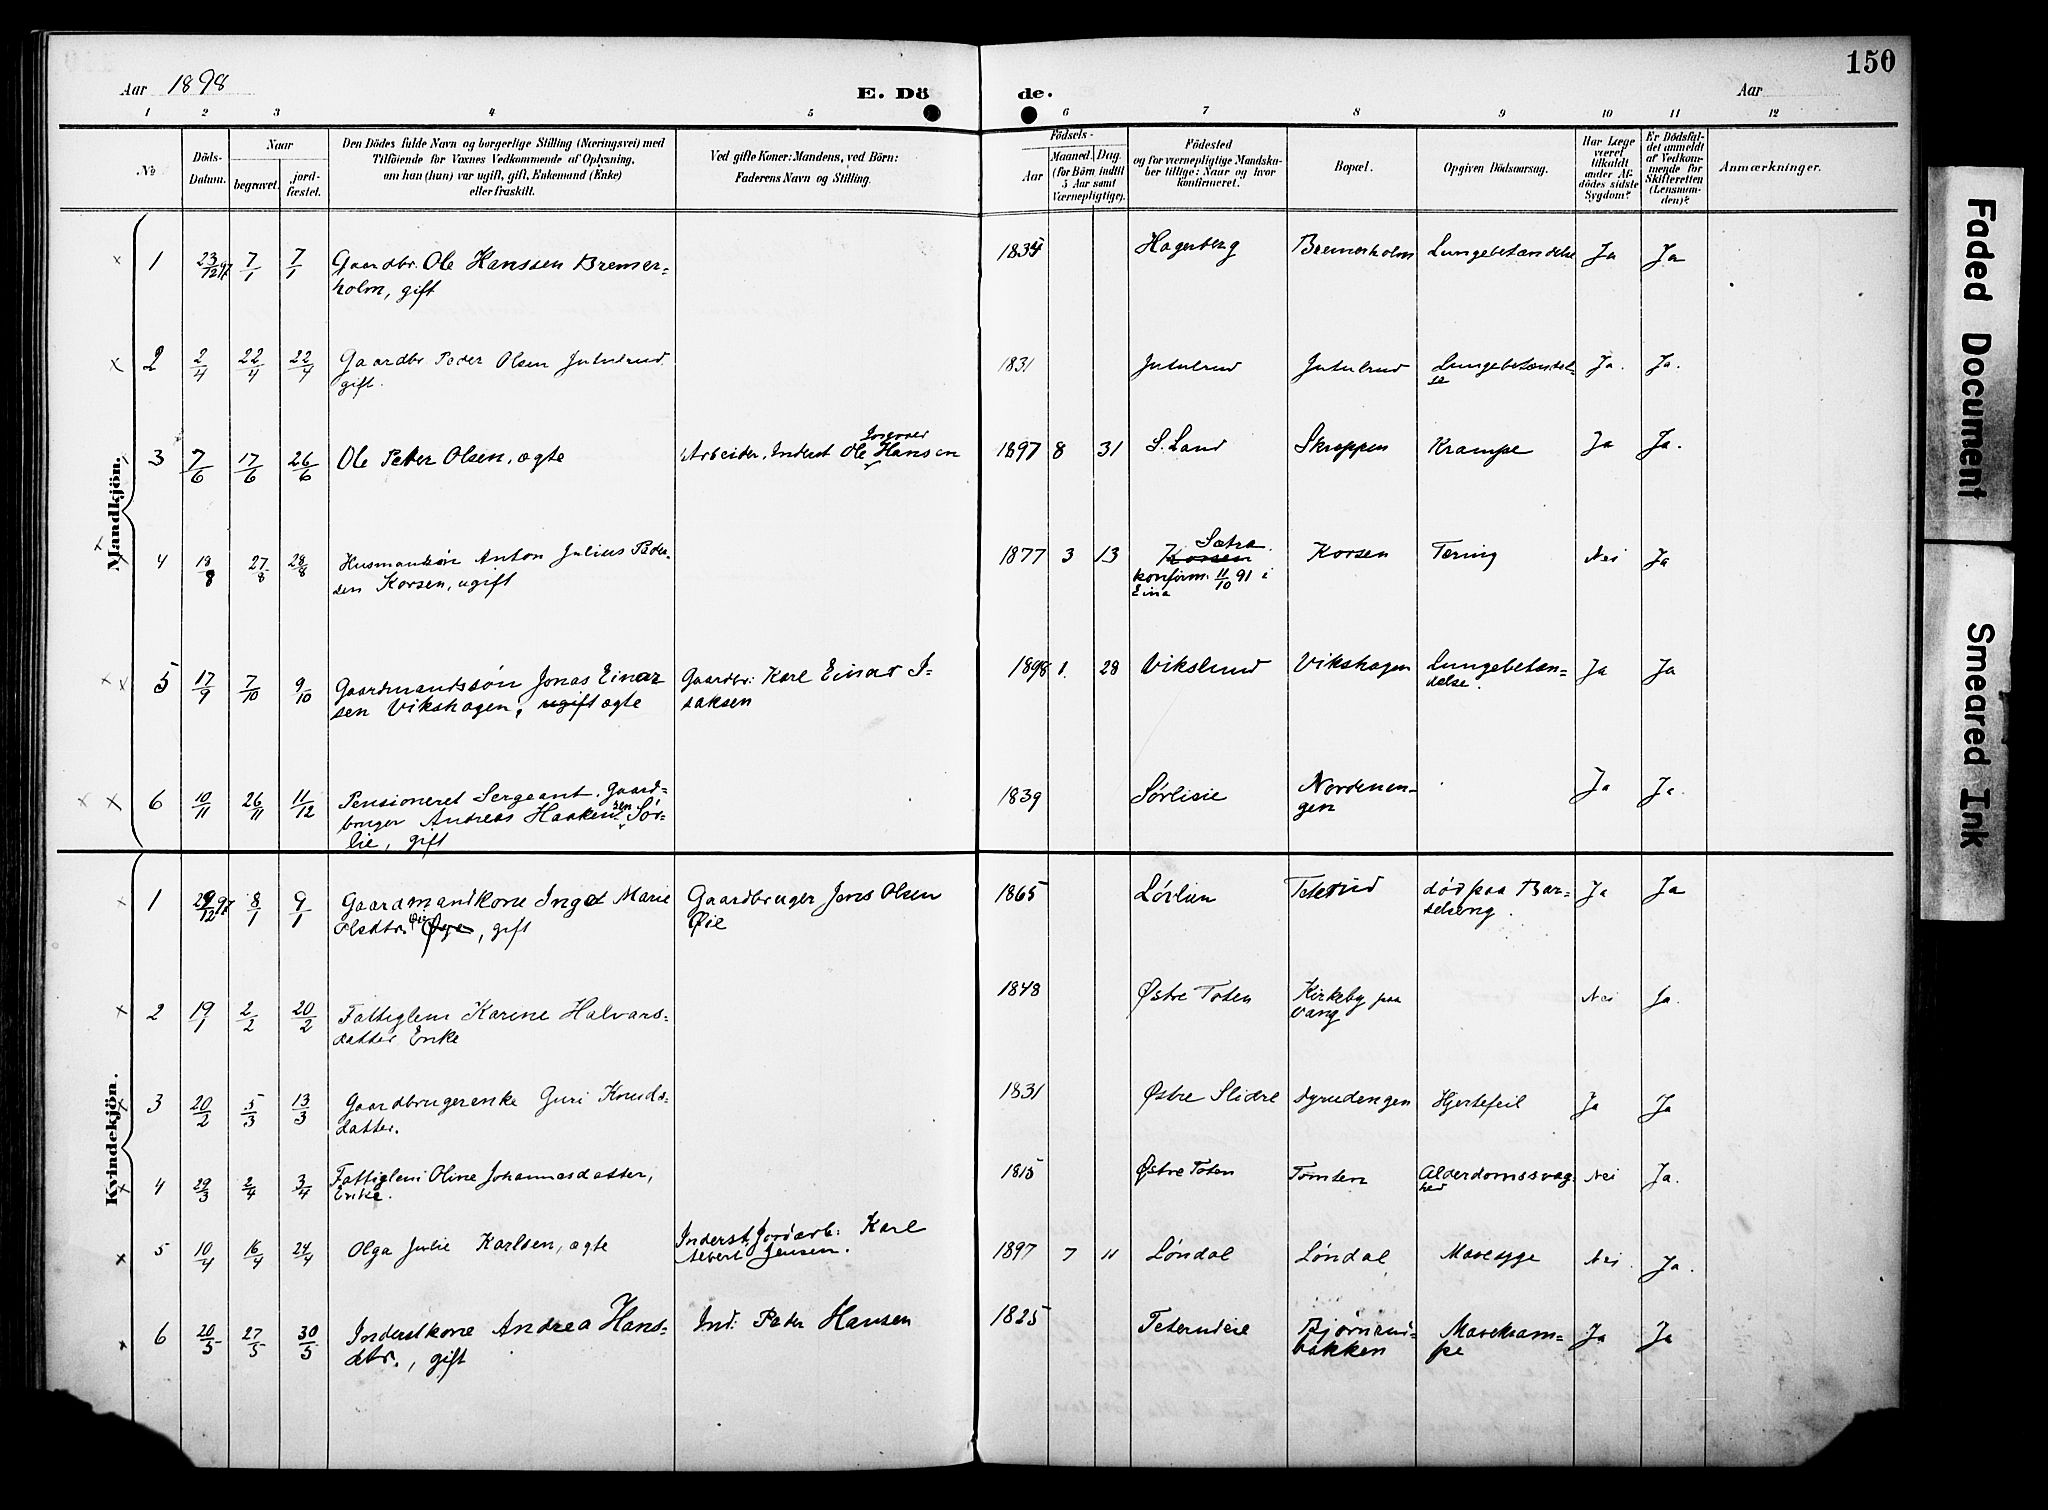 150
Aar 1898
E. Dö
de.
Aar
1 2 3 4 5 6 7 8 9 10 11 12
No
Döds-Datum.
Naar
begravet.
jord-fæstet.
Den Dödes fulde Navn og borgerlige Stilling (Næringsvei) med
Tilföiende for Voxnes Vedkommende af Oplysning,
om han (hun) var ugift, gift, Enkemand (Enke)
eller fraskilt.
Ved gifte Koner: Mandens, ved Börn:
Faderens Navn og Stilling.
Födsels-
Aar
Maaned.
Dag.
(for Börn indtil
5 Aar samt
Værnepligtige).
Födested
og for værnepligtige Mandska-
ber tillige: Naar og hvor
konfirmeret.
Bopæl.
Opgiven Dödsaarsag.
Har Læge
været
tilkaldt
under Af-
dödes sidste
Sygdom?
Er Dödsfal-
det anmeldt
af Vedkom-
mende for
Skifteretten
(Lensman-
den)?
Anmærkninger.
Mandkjön.
× 1 23/12 97 7/1 7/1 Gaardbr. Ole Hanssen Bremer-
holm, gift
1834 Hagerberg Bremerholm Lungebetændelse Ja Ja
× 2 2/4 22/4 22/4 Gaardbr. Peder Olsen Jutulrud
gift.
1831 Jutulrud Jutulrud Lungebetændel-
se Ja. Ja.
3 7/6 17/6 26/6 Ole Peter Olsen, ægte Arbeider, Inderst Ole Hansen
1897 8 31 S. Land Skroppen Krampe Ja Ja.
× 4 18/8 27/8 28/8 Husmandsøn Anton Julius Peder-
sen Korsen, ugift
1877 3 13 Sætra.
Korsen
konfirm. 11/10 91 i
Eina
Korsen Tæring Nei Ja
×× 5 17/9 7/10 9/10 Gaardmandssøn Jonas Einar
sen Vikshagen, ugift ægte
Gaardbr: Karl Einar I-
saksen
1898 1. 28 Vikslund Vikshagen Lungebetæn-
delse. Ja Ja
× × 6 10/11 26/11 11/12 Pensioneret Sergeant. Gaard-
bruger Andreas Haaken-
sen
Sør-
lie, gift
1839 Sørlieie Nordenen-
gen Ja Ja.
Kvindekjön.
× 1 29/12 97 8/1 9/1 Gaardmandkone Inger Marie
Olsdtr. Øie Øye, gift
Gaardbruger Jens Olsen
Øie
1865 Løvlien Teterud død paa Bar-
selseng. Ja Ja
× 2 19/1 2/2 20/2 Fattiglem Karine Halvors-
datter Enke
1848 Østre Toten Kirkeby paa
Vang Nei Ja.
× 3 20/2 5/3 13/3 Gaardbrugerenke Guri Knuds-
datter.
1831 Østre Slidre Dyrudengen Hjertefeil Ja Ja
× 4 29/3 2/4 3/4 Fattiglem Oline Johannesdatter,
Enke.
1815 Østre Toten Tomten Alderdomssvag-
hed Nei Ja.
× 5 10/4 16/4 24/4 Olga Julie Karlsen, ægte Inderst, Jordarb: Karl
Severt Jensen.
1897 7 11 Løndal Løndal Mavesyge Nei. Ja.
× 6 20/5 27/5 30/5 Inderstkone Andrea Hans-
dtr., gift
Ind: Peder Hansen
1825 Teterudeie Bjørnerud-
bakken Mavekram-
pe Ja Ja
Faded Document
Smeared Ink